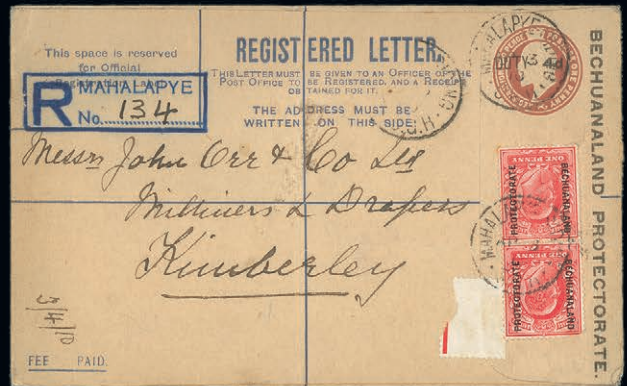 This space is reserved
for Official
REGISTERED LETTER.
THIS LETTER MUST BE GIVEN TO AN OFFICER OF THE
POST OFFICE TO BE REGISTERED, AND A RECEIPT
OBTAINED FOR IT.
THE ADDRESS MUST BE
WRITTEN ON THIS SIDE.
R MAHALAPYE
No. 134
MAHALAPYE
Messrs John Orr & Co Ltd
Milliners & Drapers
Kimberley
BECHUANALAND PROTECTORATE.
ONE PENNY
BECHUANALAND
PROTECTORATE
BECHUANALAND
PROTECTORATE
FEE PAID.